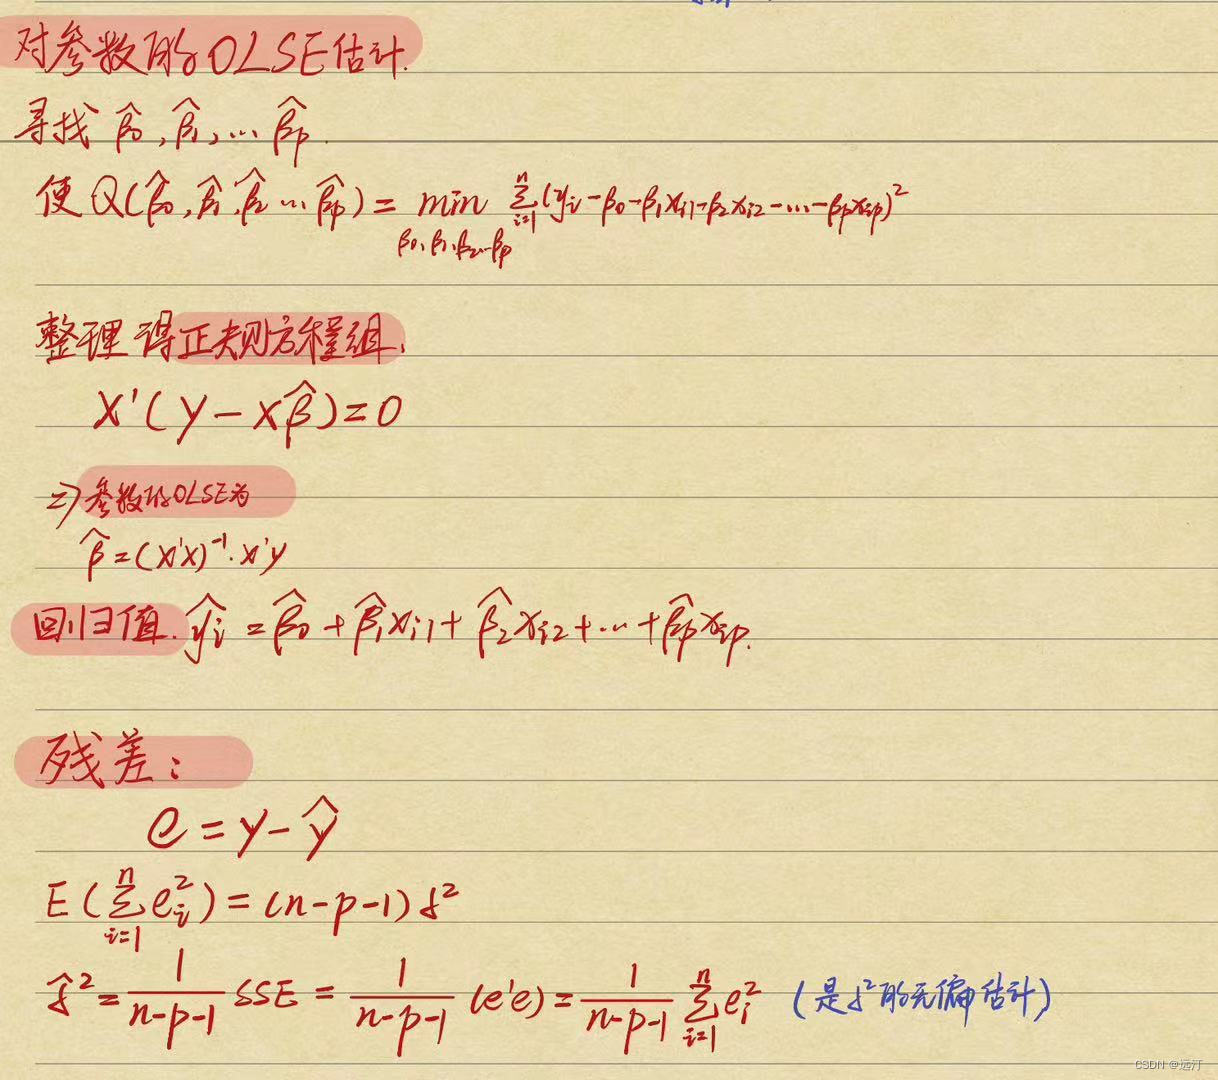 对参数的OLSE估计.
寻找 β̂₀, β̂₁, … β̂ₚ.
使 Q(β̂₀, β̂₁, β̂₂ … β̂ₚ) = min Σⁿᵢ₌₁ (yᵢ-β₀-β₁xᵢ₁-β₂xᵢ₂-…-βₚxᵢₚ)²
β₀,β₁,β₂…βₚ
整理 得正规方程组.
X'(y-xβ̂)=0
⇒参数的OLSE为
β̂=(x'x)⁻¹·x'y
回归值. ŷᵢ = β̂₀ + β̂₁xᵢ₁ + β̂₂xᵢ₂ + … + β̂ₚxᵢₚ.
残差:
e = y-ŷ
E(Σⁿᵢ₌₁ eᵢ²) = (n-p-1)σ²
σ̂² = 1/(n-p-1) SSE = 1/(n-p-1) (e'e) = 1/(n-p-1) Σⁿᵢ₌₁ eᵢ² (是σ²的无偏估计)
CSDN @远汀